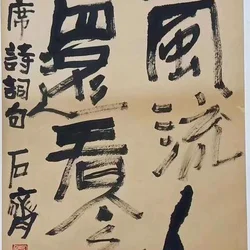 風流人
還看今
席詩詞句 石齊